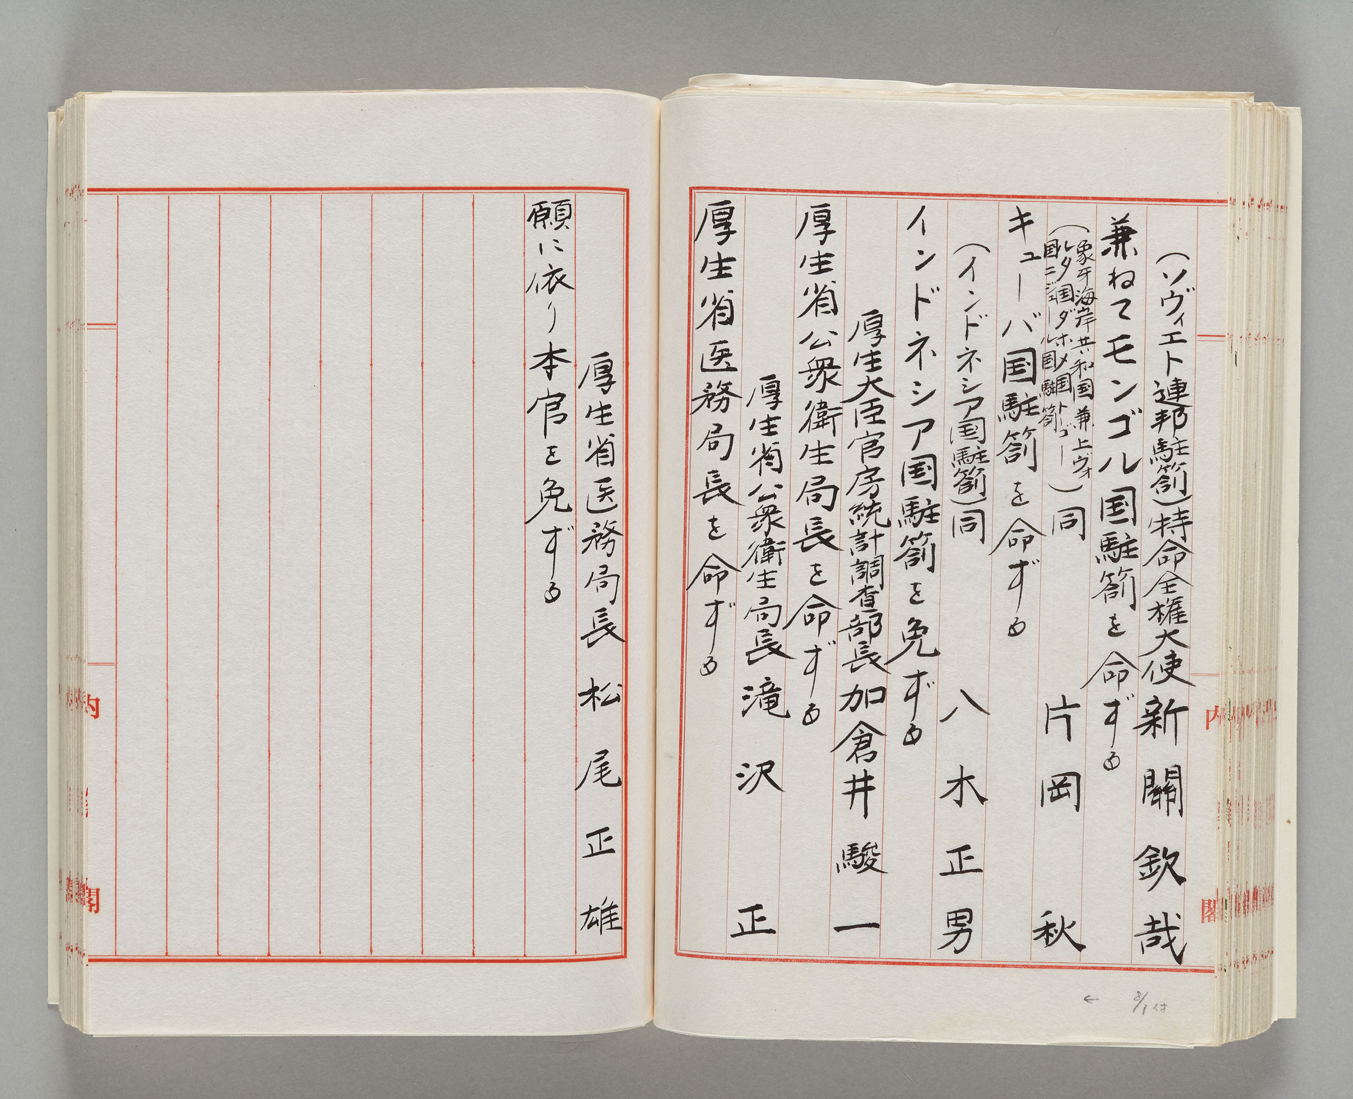 （ソヴィエト連邦駐箚）特命全権大使新關欽哉
兼ねてモンゴル国駐箚を命ずる
（象牙海岸共和国兼上ヴォ
ルタ国ダホメ国トーゴー
国ニジェール国駐箚）同 片岡秋
キューバ国駐箚を命ずる
（インドネシア国駐箚）同 八木正男
インドネシア国駐箚を免ずる
厚生大臣官房統計調査部長加倉井駿一
厚生省公衆衛生局長を命ずる
厚生省公衆衛生局長滝沢正
厚生省医務局長を命ずる
厚生省医務局長松尾正雄
願に依り本官を免ずる
内
閣
内
閣